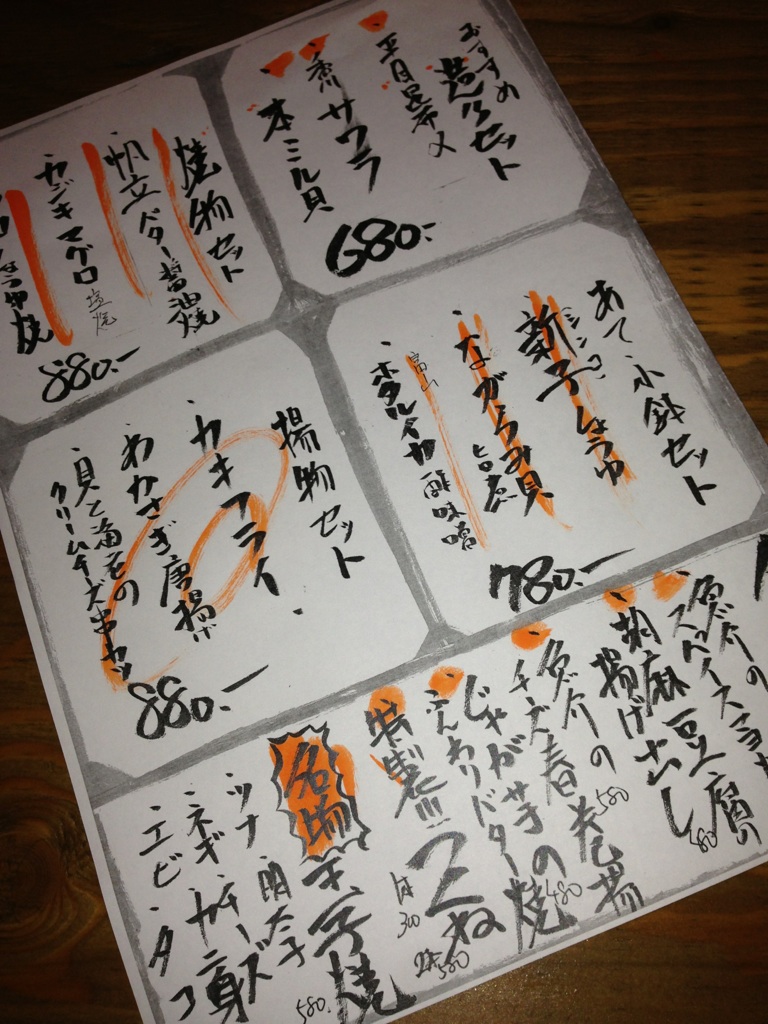 おすすめ
造りセット
・平目昆布〆
・香川 サワラ
・本ミル貝
680.-
焼物セット
・帆立バター醤油焼
・カジキマグロ 塩焼
880.-
あて小鉢セット
・新子しょうゆ
シンコ
・ながらみ貝 旨煮
・富山 ホタルイカ 酢味噌
780.-
揚物セット
・カキフライ
・わかさぎ唐揚げ
・貝と海老の
クリームチーズ串カツ
880.-
魚介の
スパイス
胡麻豆腐の
揚げ出し 480
・魚介の
チーズ春巻揚 580
・じゃが芋の
ふんわりバター焼 480
・特製!!! つくね
1本 300 2本 580
名物 玉子焼 580.
・ツナ 明太子
・ネギ・チーズ
・エビ・タコ